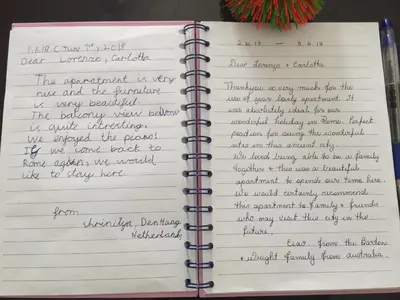 Dear Lorenzo, Carlotta
The aparatment is very
nice and the furniture
is very beautiful.
The balcony view below
is quite interesting.
We enjoyed the piano!
If we come back to
Rome again, we would
like to stay here.
from
Den Haag,
Netherlands
Dear Lorenzo + Carlotta
Thankyou so very much for the
use of your lovely apartment. It
was absolutely ideal for our
wonderful holiday in Rome. Perfect
position for seeing the wonderful
sites in this ancient city.
We loved being able to be a family
together & this was a beautiful
apartment to spend our time here.
We would certainly recommend
this apartment to family & friends
who may visit this city in the
future.
from the Barden
+ Wright family from Australia.